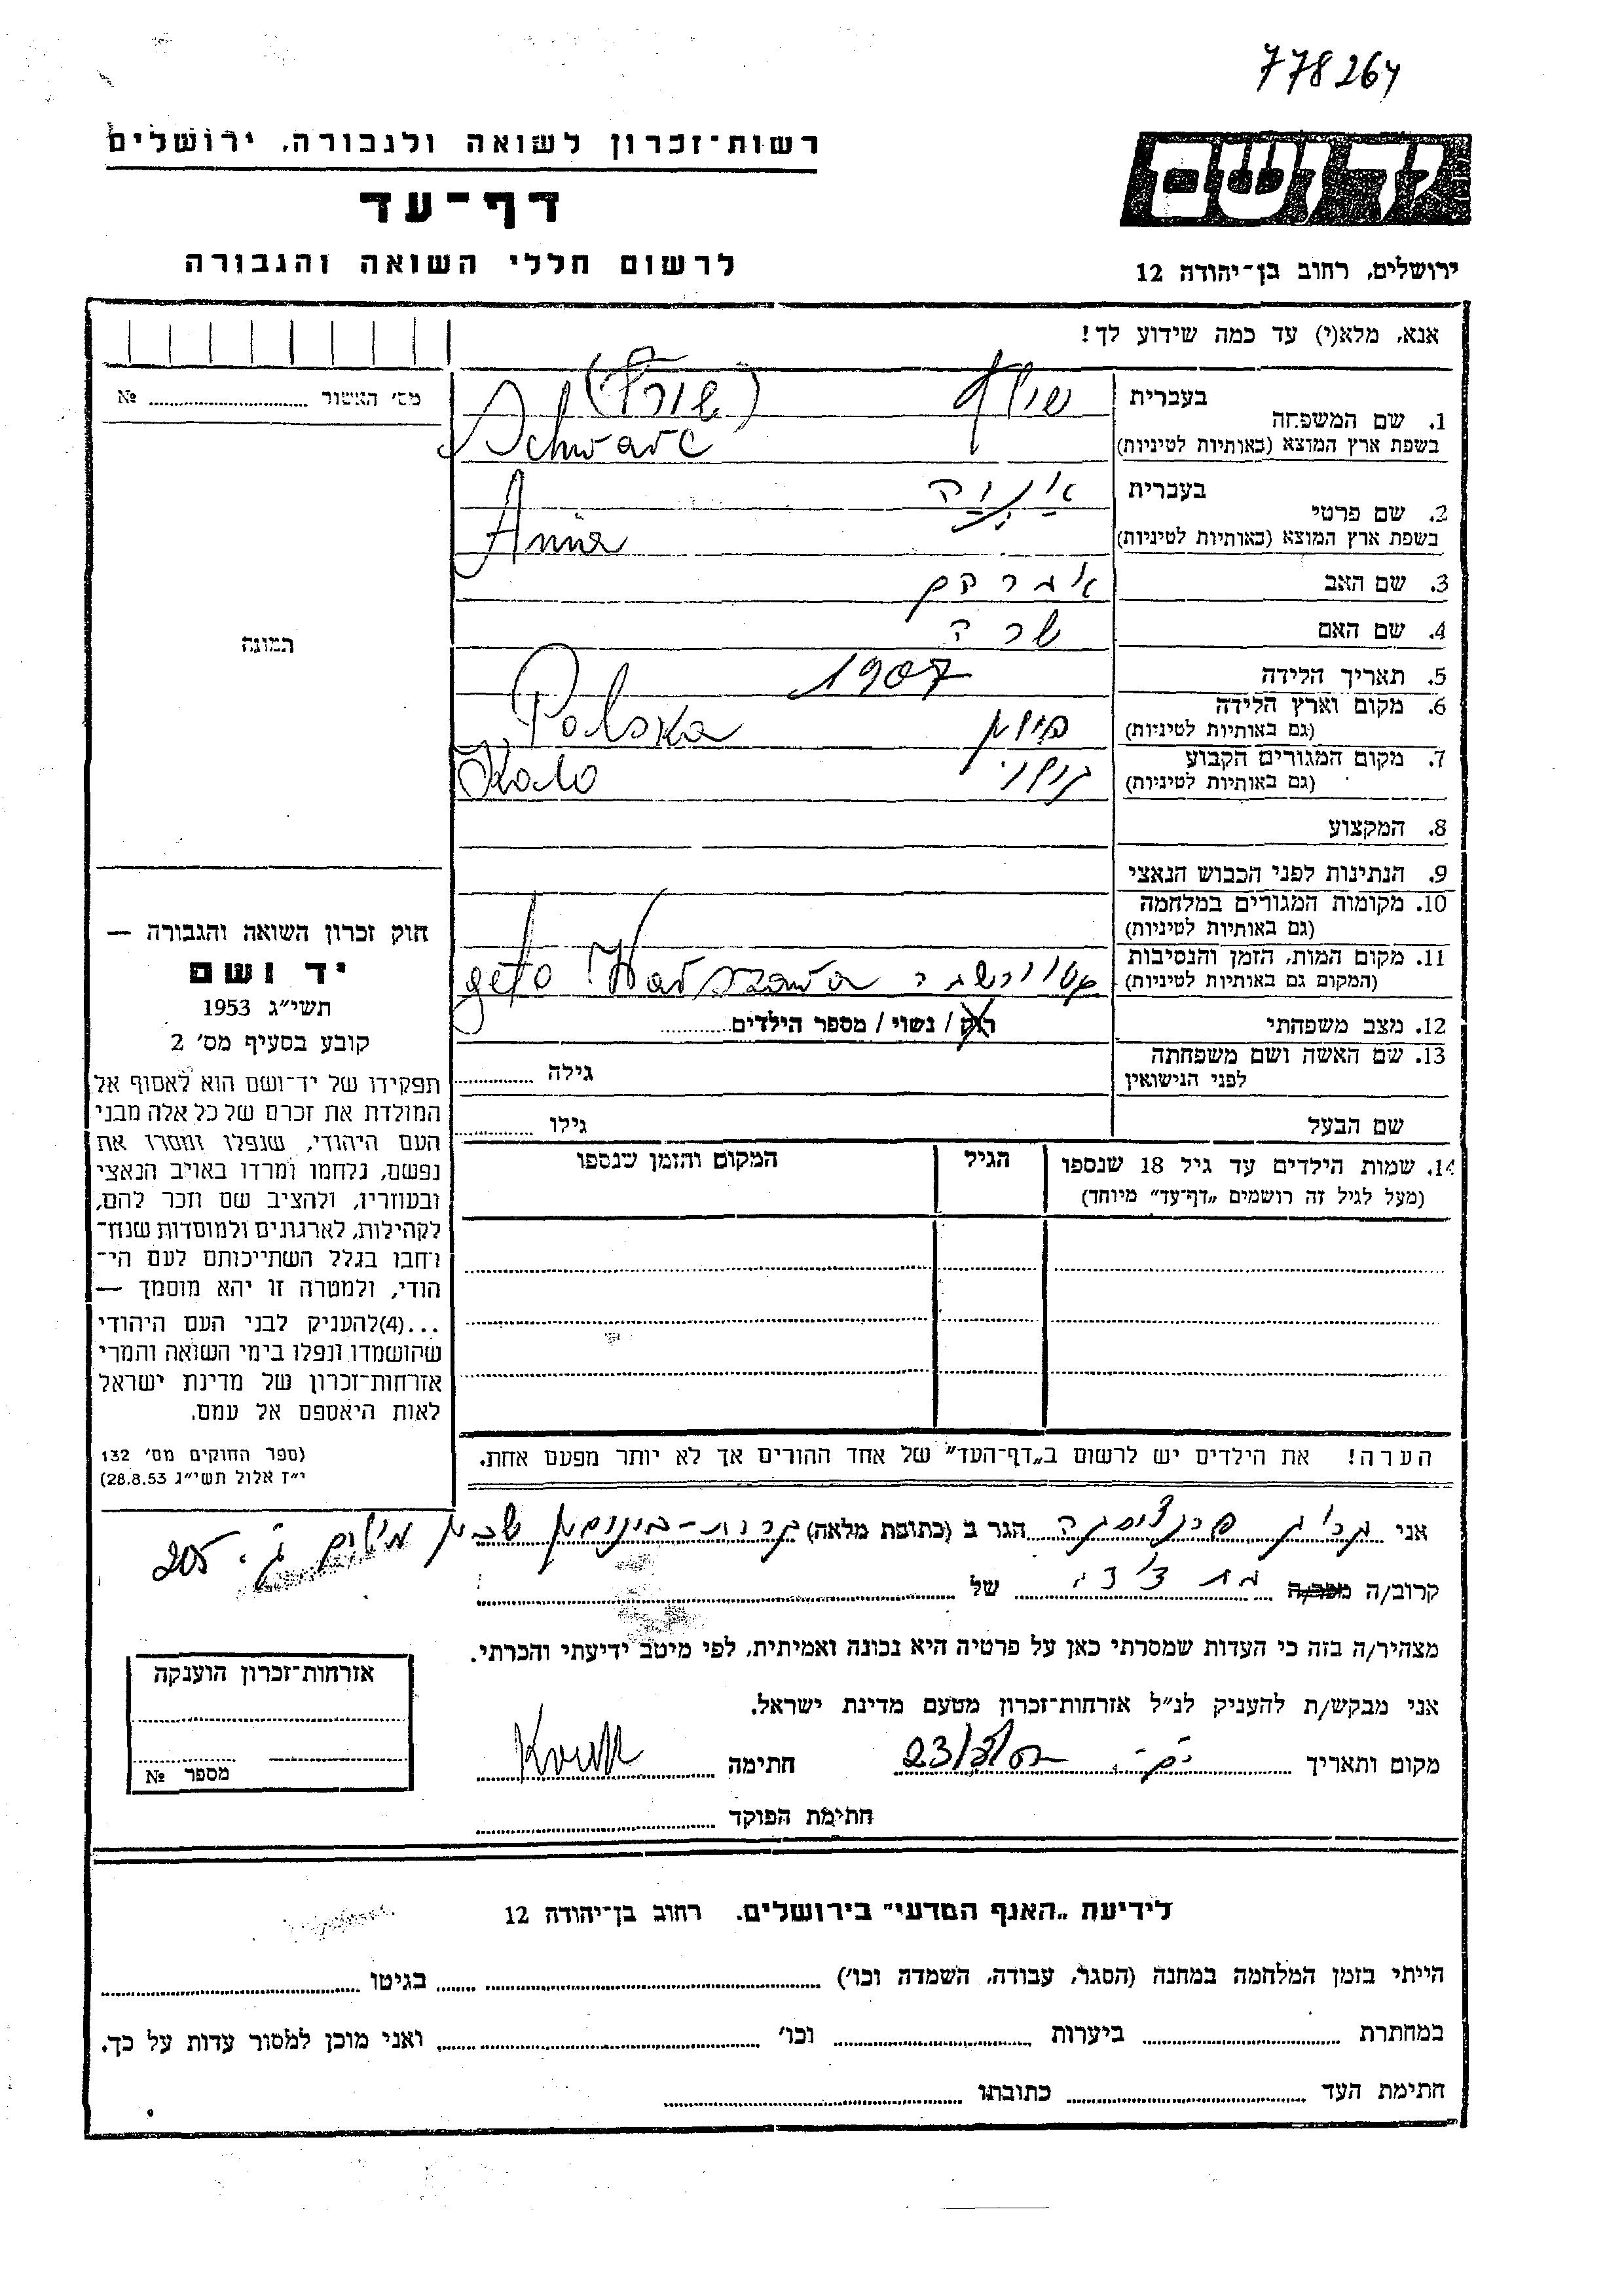 778264
רשות-זכרון לשואה ולגבורה, ירושלים
דף-עד
לרשום חללי השואה והגבורה
יד ושם
ירושלים, רחוב בן-יהודה 12
אנא, מלא(י) עד כמה שידוע לך!
מס' האשור № ........
תמונה
חוק זכרון השואה והגבורה —
יד ושם
תשי"ג 1953
קובע בסעיף מס' 2
תפקידו של יד-ושם הוא לאסוף אל
המולדת את זכרם של כל אלה מבני
העם היהודי, שנפלו ומסרו את
נפשם, נלחמו ומרדו באויב הנאצי
ובעוזריו, ולהציב שם וזכר להם,
לקהילות, לארגונים ולמוסדות שנח-
רבו בגלל השתייכותם לעם הי-
הודי, ולמטרה זו יהא מוסמך —
...(4)להעניק לבני העם היהודי
שהושמדו ונפלו בימי השואה והמרי
אזרחות-זכרון של מדינת ישראל
לאות היאספם אל עמם.
(ספר החוקים מס' 132
י"ז אלול תשי"ג 28.8.53)
1. שם המשפחה
בעברית (שורץ)
בשפת ארץ המוצא (באותיות לטיניות) Schwarc
2. שם פרטי
בעברית אַנָה
בשפת ארץ המוצא (באותיות לטיניות) Anna
3. שם האב אברהם
4. שם האם שרה
5. תאריך הלידה 1907
6. מקום וארץ הלידה
(גם באותיות לטיניות) פולין Polska
7. מקום המגורים הקבוע
(גם באותיות לטיניות) Kolo
8. המקצוע
9. הנתינות לפני הכבוש הנאצי
10. מקומות המגורים במלחמה
(גם באותיות לטיניות)
11. מקום המות, הזמן והנסיבות
(המקום גם באותיות לטיניות) גטו ורשבה geto Warszawa
12. מצב משפחתי רוק / נשוי / מספר הילדים ........
13. שם האשה ושם משפחתה
לפני הנישואין גילה ........
שם הבעל גילו ........
14. שמות הילדים עד גיל 18 שנספו
(מעל לגיל זה רושמים "דף-עד" מיוחד)
הגיל
המקום והזמן שנספו
הערה! את הילדים יש לרשום ב"דף-העד" של אחד ההורים אך לא יותר מפעם אחת.
אני פרנציסקה הגר ב (כתובת מלאה) קרית-בינימין 205
קרוב/ה מכר/ה בת דודה של ........
מצהיר/ה בזה כי העדות שמסרתי כאן על פרטיה היא נכונה ואמיתית, לפי מיטב ידיעתי והכרתי.
אני מבקש/ת להעניק לנ"ל אזרחות-זכרון מטעם מדינת ישראל.
מקום ותאריך ........ חתימה ........
חתימת הפוקד ........
אזרחות-זכרון הוענקה
מספר №
לידיעת "האגף המדעי" בירושלים, רחוב בן-יהודה 12
הייתי בזמן המלחמה במחנה (הסגר, עבודה, השמדה וכו') ........ בגיטו ........
במחתרת ........ ביערות ........ וכו' ........ ואני מוכן למסור עדות על כך.
חתימת העד ........ כתובתו ........